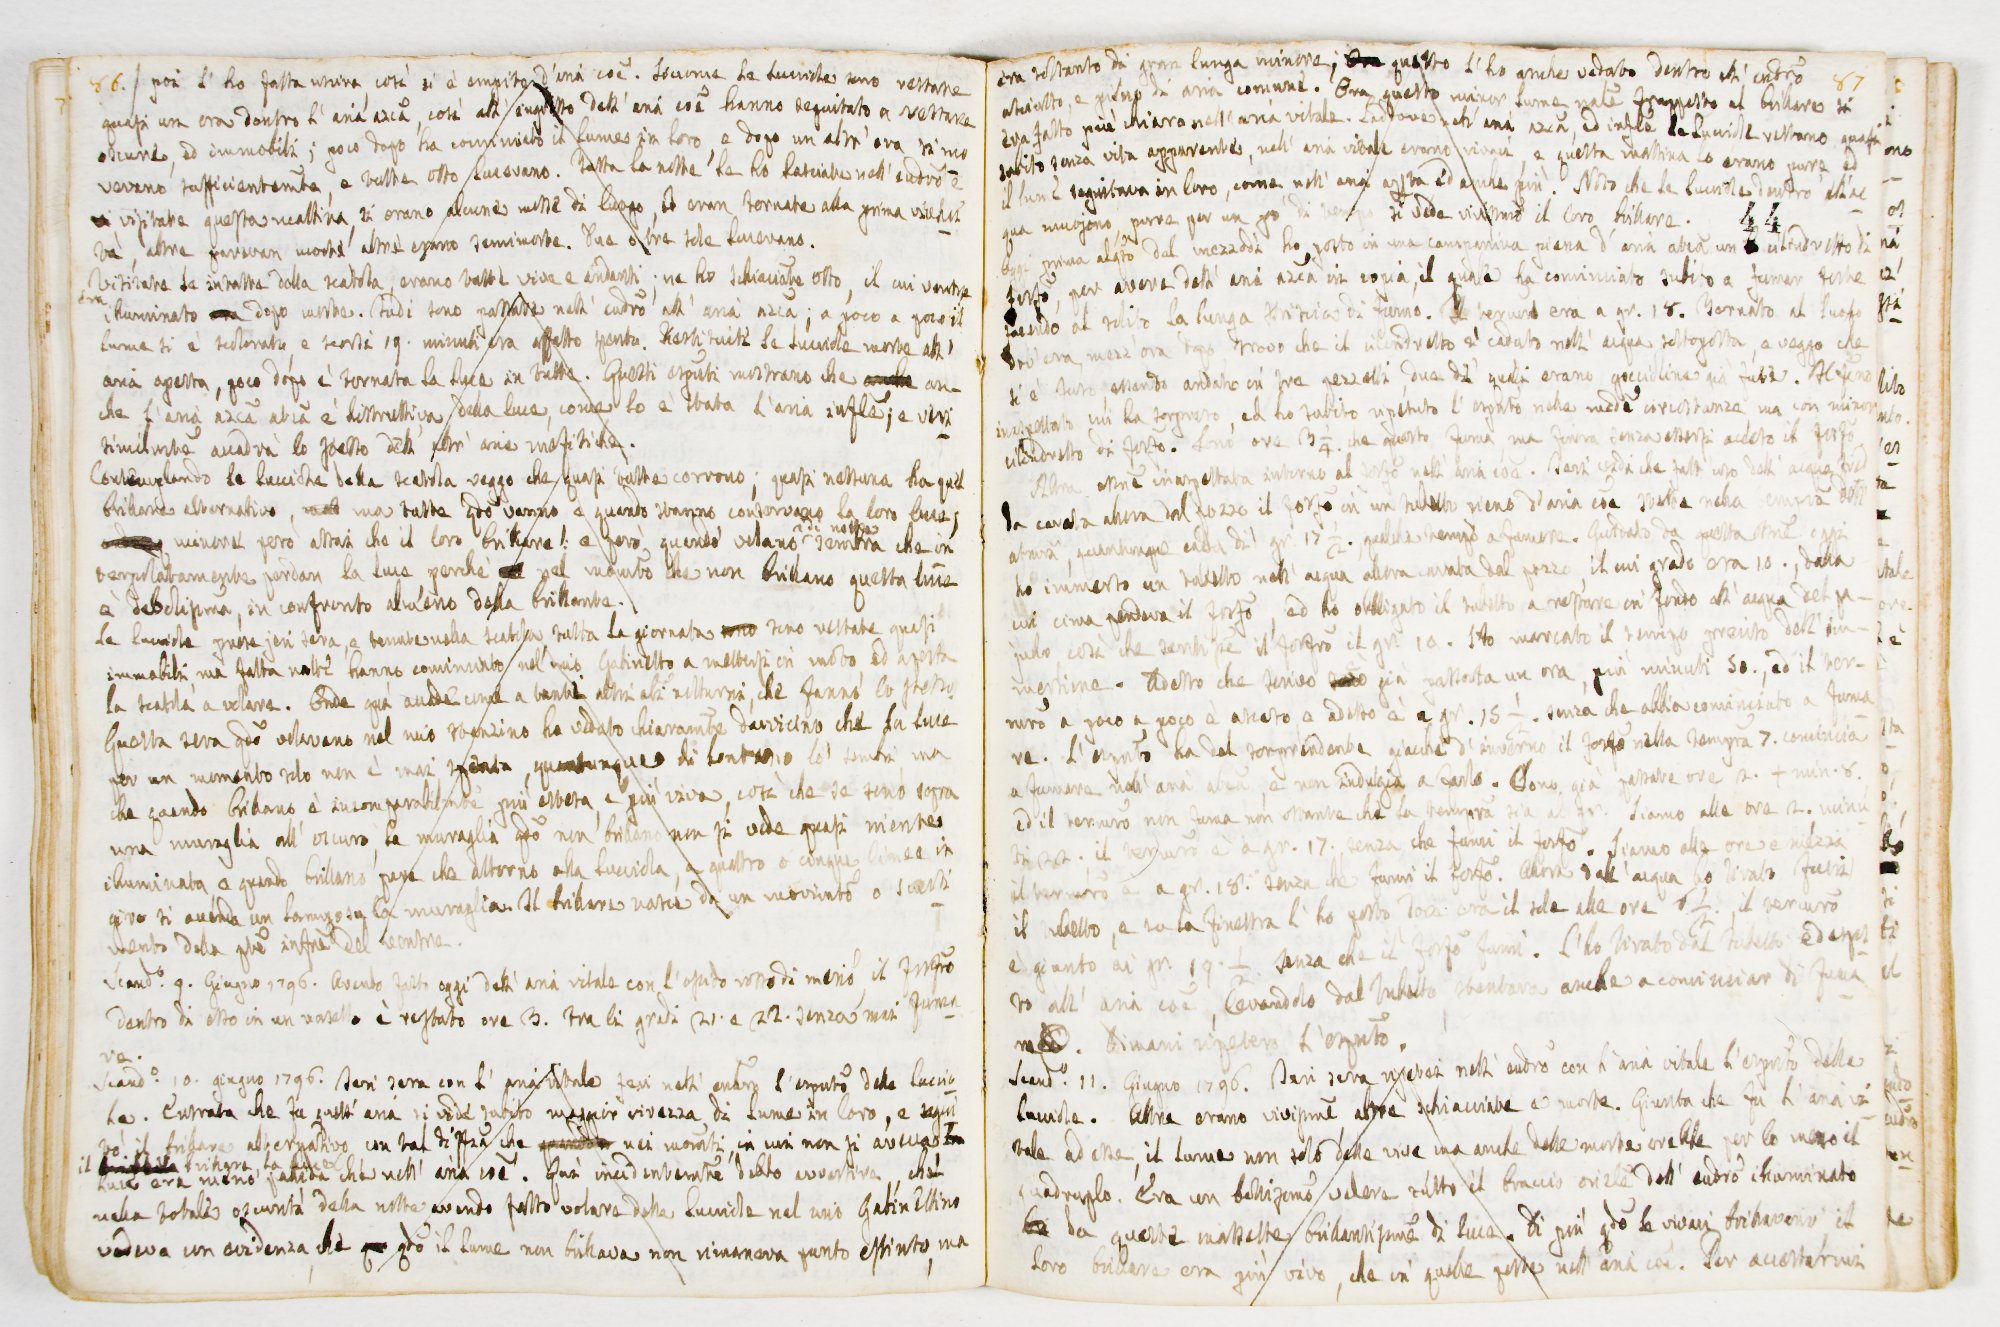 86. poi l'ho fatta uscire così si è empito d'aria coē. Siccome le lucciole sono restate
quasi un ora dentro l'aria azca, così all' ingresso dell' aria coē hanno seguitato a restare
oscure, ed immobili; poco dopo ha cominciato il lume in loro, e dopo un altr' ora si mo
vevano sufficientemte, e tutte otto lucevano. Tutta la notte le ho lasciate nell' eudrō e
visitate questa mattina, si erano alcune messe di luogo, ed eran tornate alla prima vivaci
tà, altre parevan morte, altre erano semimorte. Due o tre sole lucevano.
Visitate le intatte dalla scatola, erano tutte vive e andanti; ne ho schiacciate otto, il cui ventre
era illuminato dopo morte. Indi sono passate nell' eudrō all' aria azca; a poco a poco il
lume si è scolorato, e scorsi 19. minuti era affatto spento. Restituite le lucciole morte all'
aria aperta, poco dopo è tornata la luce in tutte. Questi esputi mostrano che an-
che l'aria azca atca è distruttiva della luce, come lo è stata l'aria inflē; e veri
similmte accadrà lo stesso dell' altr' arie mefitiche.
Contemplando le lucciole della scatola veggo che quasi tutte corrono; quasi nessuna ha quel
brillare alternativo, ma tutte qdo vanno e quando stanno conservano la loro luce,
minore però assai che il loro brillare: e però quando volano di notte sembra che in
terpolatamente perdan la luce perche nel momto che non brillano questa luce
è debolissima, in confronto almeno della brillante.
Le lucciole prese jeri sera, e tenute nella scatola tutta la giornata sono restate quasi
immobili, ma fatta notte hanno cominciato nel mio Gabinetto a mettersi in moto ed aperta
la scatola a volare. Onde qui accade come a tanti altri ali notturni, che fanno lo stesso.
Questa sera qdo volavano nel mio stanzino ho veduto chiaramte davvicino che la luce
per un momento solo non è mai spenta, quantunque di lontano lo sembri ma
che quando brillano è incomparabilmte più estesa, e più viva, così che se sono sopra
una muraglia all' oscuro, la muraglia qdo non brillano non si vede quasi niente
illuminata e quando brillano pare che attorno alla lucciola, a quattro o cinque linee in
giro si accenda un lampo su la muraglia. Il brillare nasce da un movimto o scorri
mento della pte infre del ventre.
Scand.o 9. Giugno 1796. Avendo fatto oggi dell' aria vitale con l'ossido rosso di merio, il fosfro
dentro di esso in un vasello è restato ore 3. tra li gradi 21. e 22. senza mai fuma
re.
Scand.o 10. giugno 1796. Jeri sera con l' aria vitale feci nell' eudro l'esputo delle luccio
le. Entrata che fu quest' aria si vide subito maggior vivezza di lume in loro, e segui
tò il brillare alternativo con tal diffza che nei momti, in cui non si aveva
il brillare, la luce era meno pallida che nell' aria coē. Qui incidentemte debbo avvertire, che
nella totale oscurità della notte avendo fatto volare delle lucciole nel mio Gabinettino
vedeva con evidenza, che qdo il lume non brillava non rimaneva punto estinto, ma
87
era soltanto di gran lunga minore; questo l'ho anche veduto dentro all' eudrō
asciutto, e pieno di aria comune. Ora questo minor lume nate frapposto al brillare si
era fatto più chiaro nell' aria vitale. Laddove nell' aria azca, ed inflē le lucciole restano quasi
subito senza vita apparente, nell' aria vitale erano vivaci, e questa mattina lo erano pure, ed
il lume seguitava in loro, come nell' aria aperta ed anche più. Noto che le lucciole dentro all' ac
qua muojono, purre per un po' di tempo si vede vivissimo il loro brillare. 44
Oggi prima del mezzodì ho posto in una campanina piena d'aria atca un cilindretto di
fosfo, per avere dell' aria azca in copia, il quale ha cominciato subito a fumar forte
facendo al solito la lunga striscia di fumo. Il termro era a gr. 18. Tornato al luogo
dov' era mezz' ora dopo trovo che il cilindretto è caduto nell' acqua sottoposta, e veggo che
si è fuso, essendo andato in tre pezzetti due di' quali erano goccioline già fuse. Il feno
inaspettato mi ha sorpreso, ed ho subito ripetuto l' esputo nelle medē circostanze ma con minor
cilindretto di fosfo. Sono ore 3 1/4. che questo fuma, ma finora senza essersi acceso il fosfo.
Altra ossne inaspettata intorno al fosfo nell' aria coē. Jeri vidi che fatt' uso dell' acqua fred
da cavata allora dal pozzo il fosfo in un tubetto pieno d'aria coē stette nella tempra dell'
atmra, quantunque calda di gr. 17 1/2. qualche tempo a fumare. Guidato da questa ossne oggi
ho immerso un tubetto nell' acqua allora cavata dal pozzo, il cui grado era 10., dalla
cui cima pendeva il fosfo, ed ho obbligato il tubetto a restare in fondo all' acqua del pa-
juolo così che sentisse il fosfro il gr. 10. Ho marcato il tempo preciso dell' im-
mersione. Adesso che scrivo già passata un ora, più minuti 50., ed il ter-
mro a poco a poco è asceso e adesso è a gr. 15 1/2. senza che abbia cominciato a fuma
re. L' esputo ha del sorprendente giacchè d'inverno il fosfo nella tempra 7. comincia
a fumare nell' aria atca, e non indugia a farlo. Sono già passate ore 2. + min. 8.
ed il termro non fuma non ostante che la tempra sia al gr. Siamo alle ore 2. minu
ti 22. il termro è a gr. 17. senza che fumi il fosfo. Siamo alle ore e mezza
il termro è a gr. 18. senza che fumi il fosfo. Allora dall' acqua ho tirato fuori
il tubetto, e su la finestra l'ho posto dove era il sole alle ore 6 1/2., il termro
è giunto ai gr. 19. 1/2 senza che il fosfo fumi. L'ho tirato dal tubetto ed espos
to all' aria coē, levandolo dal tubetto stentava anche a cominciar di fuma
re. Dimani ripeterò l'esputo.
Scand.o 11. Giugno 1796. Jeri sera ripetei nell' eudro con l'aria vitale l'esputo delle
lucciole. Altre erano vivissime, altre schiacciate e morte. Giunta che fu l'aria vi
tale ad esse, il lume non solo delle vive ma anche delle morte crebbe per lo meno il
quadruplo. Era un bellissimo vedere tutto il braccio orizle dell' eudro illuminato
da queste masselle brillantissime di luce. Di più qdo le vivaci brillavano il
loro brillare era più vivo, che in quelle poste nell' aria coē. Per accostarmi